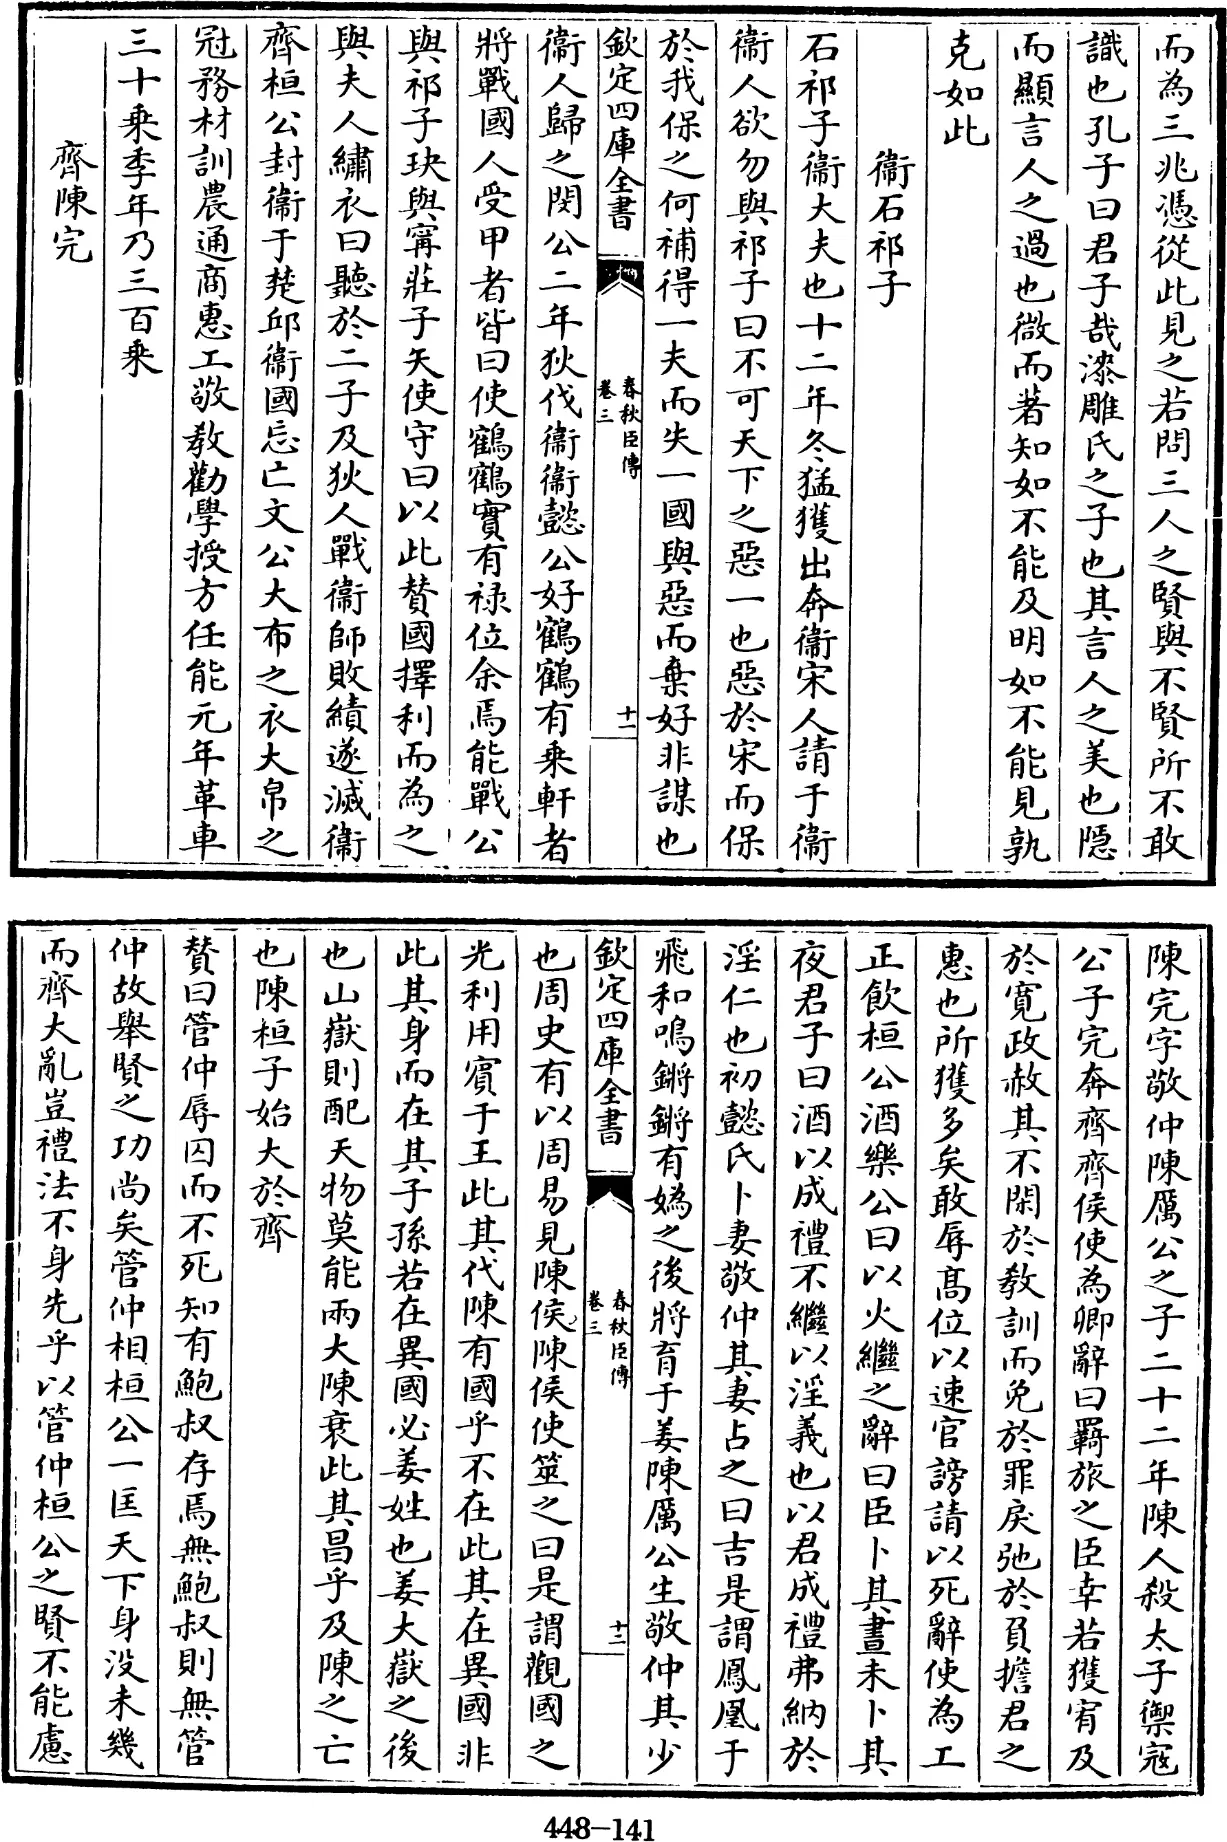 而為三兆憑從此見之若問三人之賢與不賢所不敢
識也孔子曰君子哉漆雕氏之子也其言人之美也隱
而顯言人之過也微而著知如不能及明如不能見孰
克如此
衞石祁子
石祁子衞大夫也十二年冬猛獲出奔衞宋人請于衞
衞人欲勿與祁子曰不可天下之惡一也惡於宋而保
於我保之何補得一夫而失一國與惡而棄好非謀也
欽定四庫全書
春秋臣傳
卷三
十一
衞人歸之閔公二年狄伐衞衞懿公好鶴鶴有乘軒者
將戰國人受甲者皆曰使鶴鶴實有禄位余焉能戰公
與祁子玦與甯莊子矢使守曰以此贊國擇利而為之
與夫人繡衣曰聽於二子及狄人戰衞師敗績遂滅衞
齊桓公封衞于楚邱衞國忘亡文公大布之衣大帛之
冠務材訓農通商惠工敬教勸學授方任能元年革車
三十乘季年乃三百乘
齊陳完
陳完字敬仲陳厲公之子二十二年陳人殺太子禦寇
公子完奔齊齊侯使為卿辭曰羇旅之臣幸若獲宥及
於寛政赦其不閑於教訓而免於罪戾弛於負擔君之
惠也所獲多矣敢辱髙位以速官謗請以死辭使為工
正飲桓公酒樂公曰以火繼之辭曰臣卜其晝未卜其
夜君子曰酒以成禮不繼以淫義也以君成禮弗納於
淫仁也初懿氏卜妻敬仲其妻占之曰吉是謂鳳凰于
飛和鳴鏘鏘有媯之後將育于姜陳厲公生敬仲其少
欽定四庫全書
春秋臣傳
卷三
十二
也周史有以周易見陳侯陳侯使筮之曰是謂觀國之
光利用賓于王此其代陳有國乎不在此其在異國非
此其身而在其子孫若在異國必姜姓也姜大嶽之後
也山嶽則配天物莫能兩大陳衰此其昌乎及陳之亡
也陳桓子始大於齊
贊曰管仲辱囚而不死知有鮑叔存焉無鮑叔則無管
仲故舉賢之功尚矣管仲相桓公一匡天下身没未幾
而齊大亂豈禮法不身先乎以管仲桓公之賢不能慮
448-141